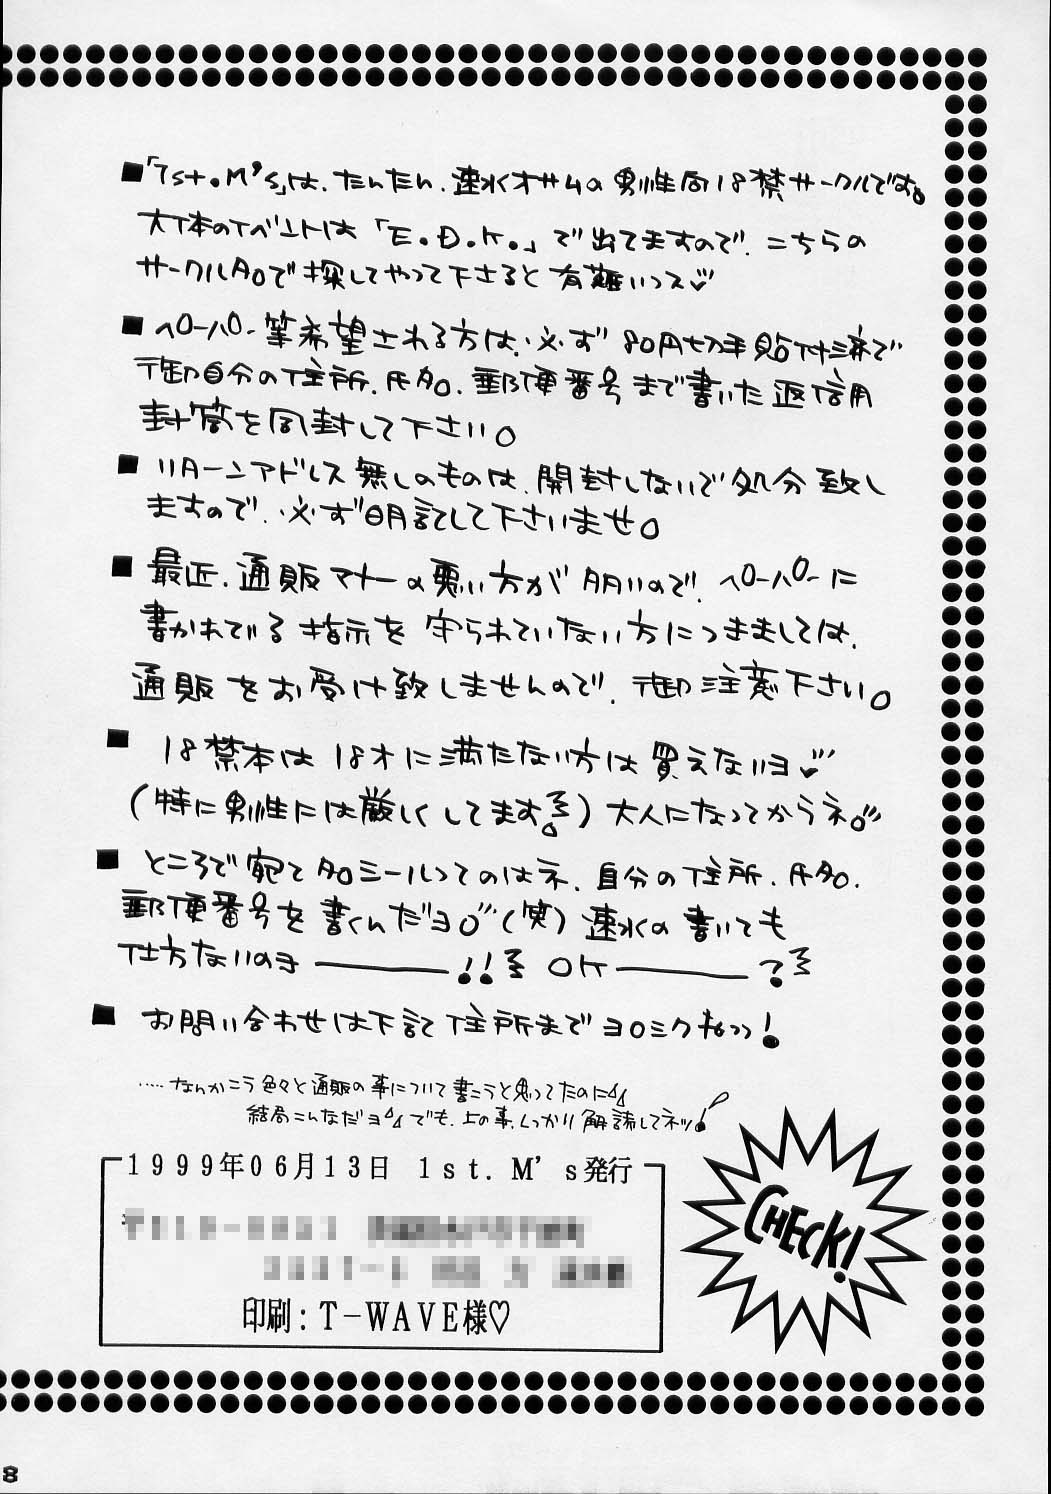 ■「1st.M's」は、たんたん、速水オサムの男性向18禁サークルです。
大体のイベントは「E.D.K.」で出てますので、こちらの
サークル名で探してやって下さると有難いっス♡
■ペーパー等希望される方は、必ず80円切手貼付済で
御自分の住所、氏名、郵便番号まで書いた返信用
封筒を同封して下さい。
■リターンアドレス無しのものは、開封しないで処分致し
ますので、必ず明記して下さいませ。
■最近、通販マナーの悪い方が多いので、ペーパーに
書かれている指示を守られていない方につきましては、
通販をお受け致しませんので、御注意下さい。
■18禁本は18才に満たない方は買えないヨ♡
(特に男性には厳しくしてます!)大人になってからうネ。
■ところで宛て名シールってのはネ、自分の住所、氏名、
郵便番号を書くんだヨ。(笑)速水の書いても
仕方ないのヨ――!! OK――?
■お問い合わせは下記住所までヨロシクねっっ!
……なんかこう色々と通販の事について書こうと思ってたのに
結局こんなだヨ でも、上の事、しっかり解読してネッ!
1999年06月13日 1st.M's発行
印刷:T-WAVE様♡
CHECK!
8